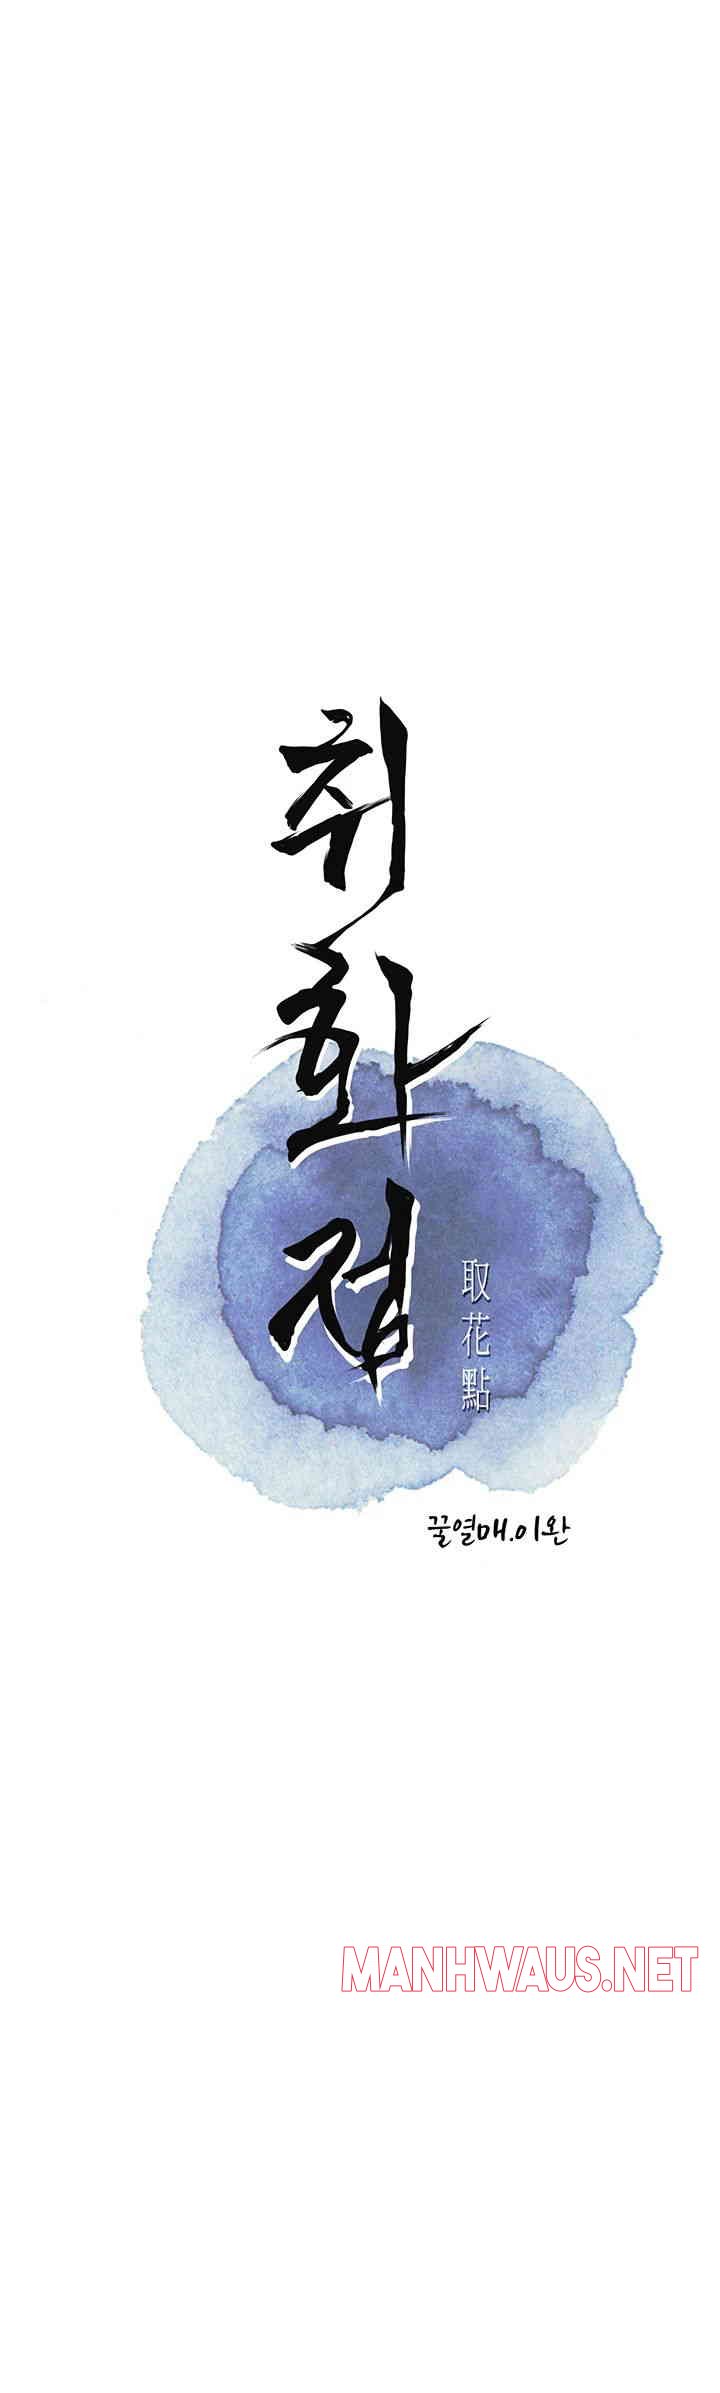 취화점
取花點
꿀열매.이완
MANHWAUS.NET